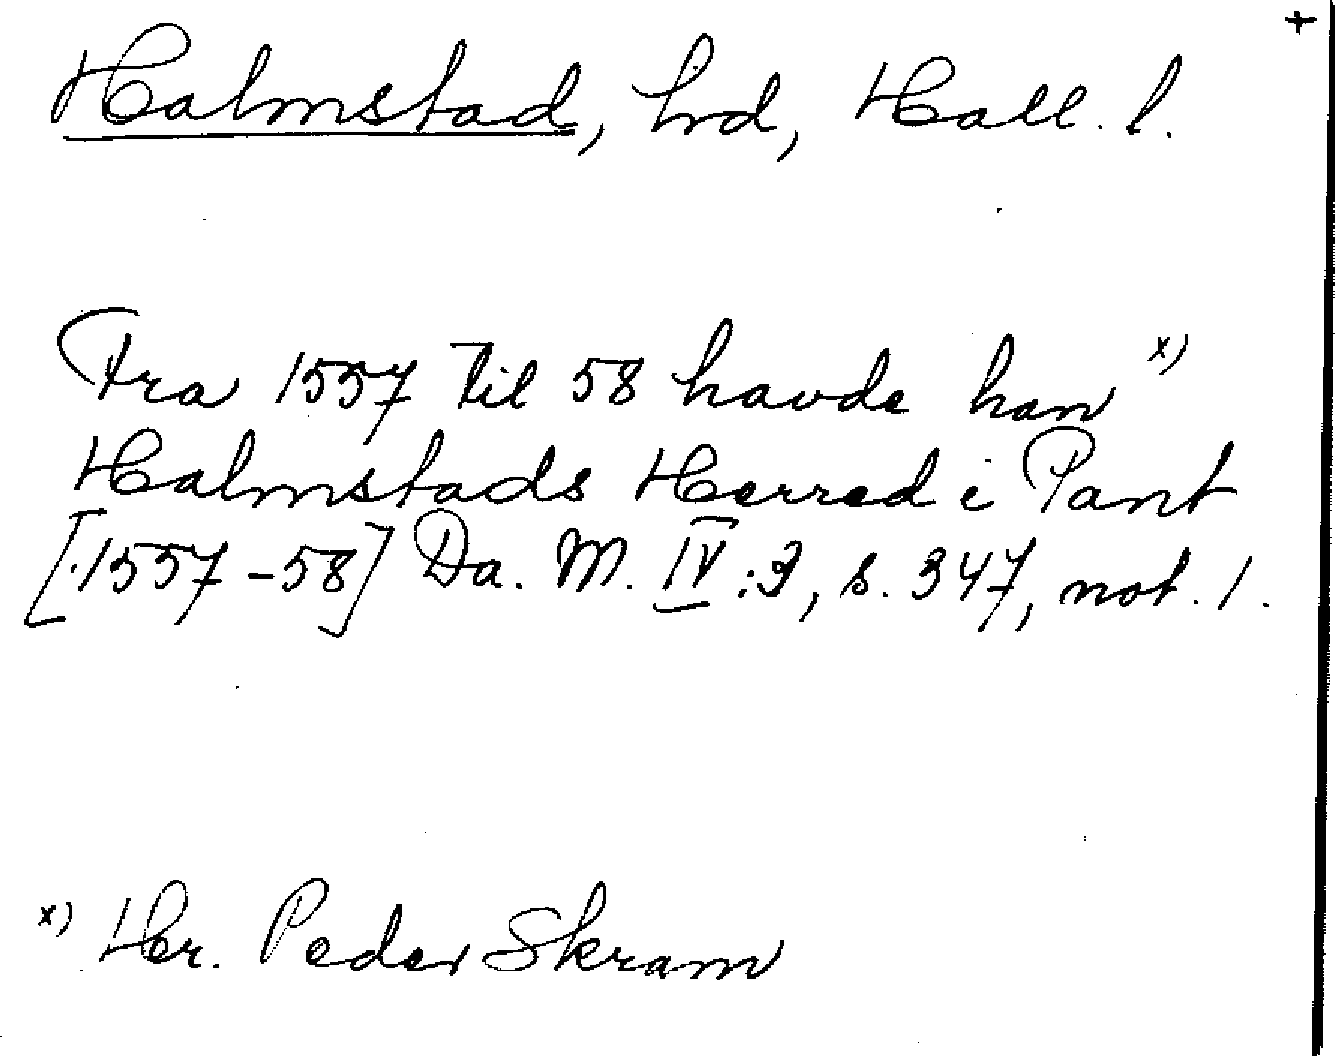 +
Halmstad, hrd, Hall. l.
Fra 1557 til 58 havde han x)
Halmstads Herred i Pant
[1557-58] Da. M. IV:3, s. 347, not. 1.
x) Hr. Peder Skram